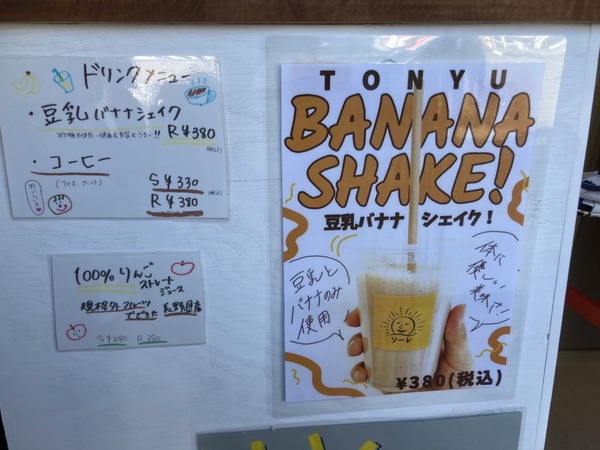 ドリンクメニュー
・豆乳バナナシェイク
R ¥380
(税込)
・コーヒー
(アイス・ホット)
S ¥330
(税込)
R ¥380
おいしいよ
100%りんご
ストレート
ジュース
規格外フルーツ
でできた 長野県産
S ¥280 R ¥380
TONYU
BANANA
SHAKE!
豆乳バナナ シェイク!
豆乳と
バナナのみ
使用
体に
優しい
ソーレ
¥380(税込)